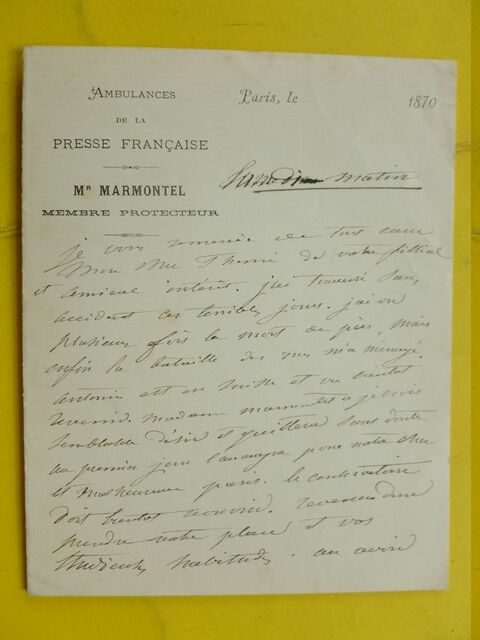 AMBULANCES
DE LA
PRESSE FRANÇAISE
Mr MARMONTEL
MEMBRE PROTECTEUR
Paris, le 1870
Samedi matin
Je vous remercie de tout cœur
Mon cher Thomé de votre filial
et amical intérêt. j'ai traversé sans
accident ces terribles jours. j'ai vu
plusieurs fois la mort de près, mais
enfin la bataille des rues m'a ménagé.
antonin est en suisse et va bientôt
revenir. madame marmontel a je crois
semblable désir et quittera sans doute
au premier jour pour notre cher
et malheureux paris. le conservatoire
doit bientôt rouvrir. revenez donc
prendre votre place et vos
studieuses habitudes. au revoir